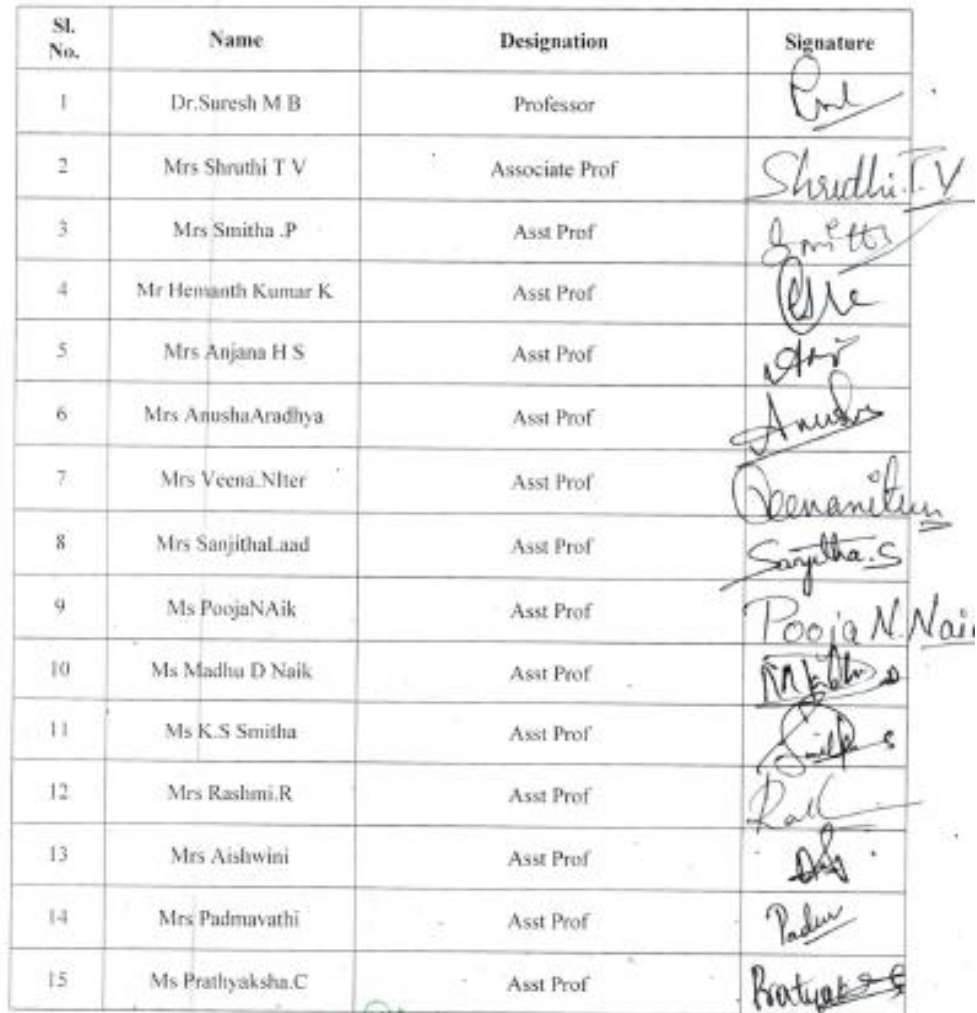 Sl. No. Name Designation Signature
1 Dr.Suresh M B Professor
2 Mrs Shruthi T V Associate Prof Shruthi.T.V
3 Mrs Smitha .P Asst Prof
4 Mr Hemanth Kumar K Asst Prof
5 Mrs Anjana H S Asst Prof
6 Mrs AnushaAradhya Asst Prof
7 Mrs Veena.NIter Asst Prof
8 Mrs SanjithaLaad Asst Prof Sanjitha.S
9 Ms PoojaNAik Asst Prof Pooja N.
10 Ms Madhu D Naik Asst Prof
11 Ms K.S Smitha Asst Prof
12 Mrs Rashmi.R Asst Prof
13 Mrs Aishwini Asst Prof
14 Mrs Padmavathi Asst Prof
15 Ms Prathyaksha.C Asst Prof